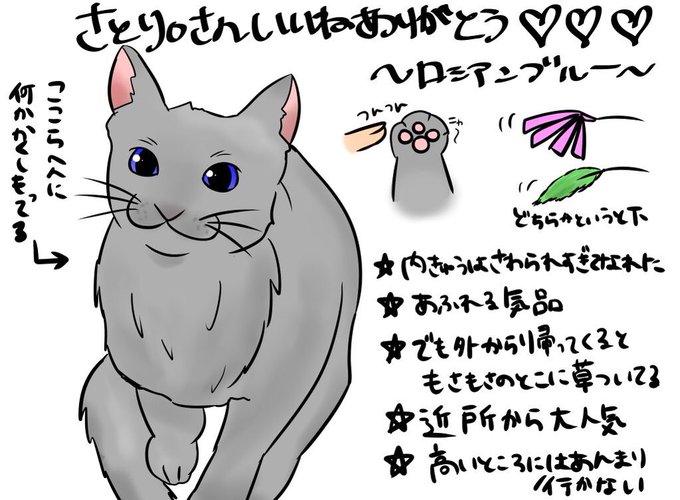 さとり。さんいいねありがとう♡♡♡
～ロシアンブルー～
ここらへんに
何かかくしもってる
つんつん
どちらかというと下
☆内きゅうはさわられすぎてなれた
☆あふれる気品
☆でも外から帰ってくると
もさもさのとこに草ついてる
☆近所から大人気
☆高いところにはあんまり
行かない